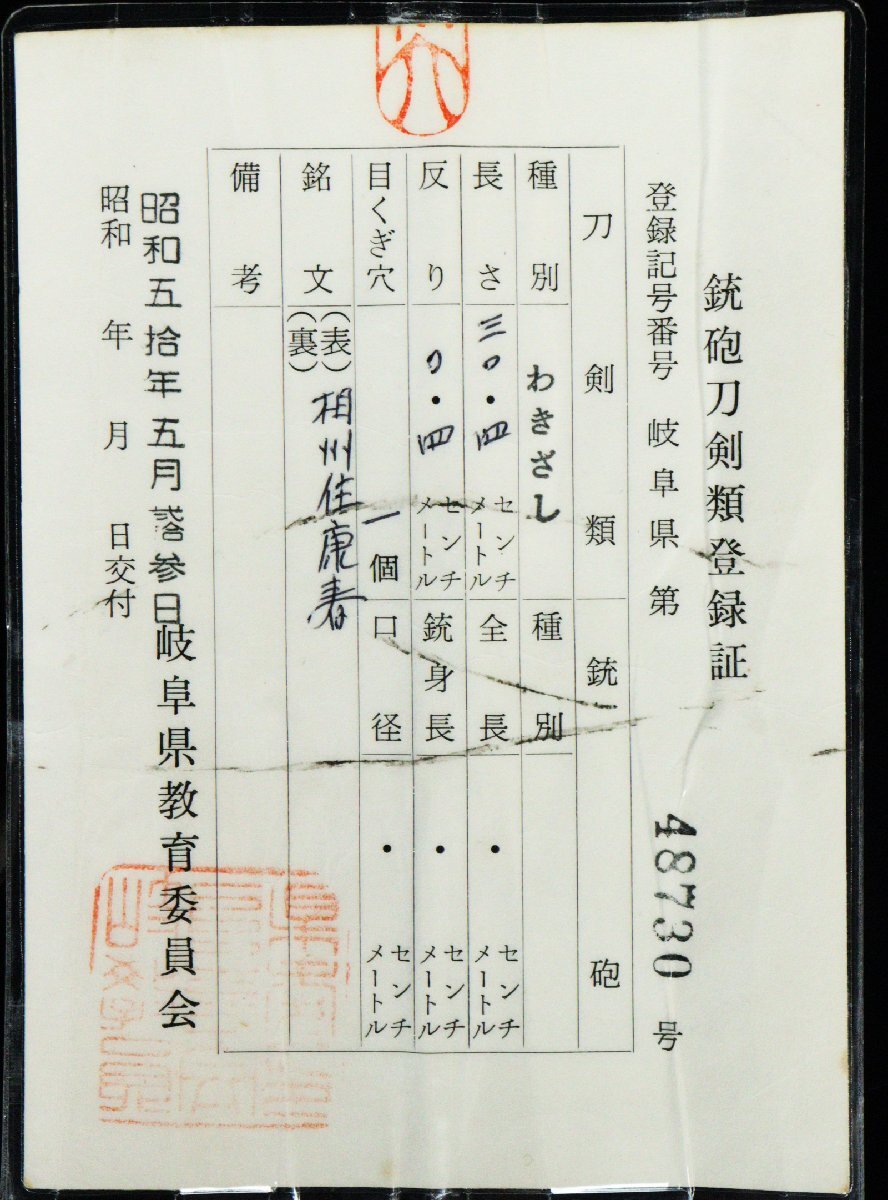 銃砲刀剣類登録証
登録記号番号 岐阜県 第 48730 号
刀剣類 銃砲
種別 わきざし 種別
長さ 三〇・四 センチメートル 全長 ・ センチメートル
反り 〇・四 センチメートル 銃身長 ・ センチメートル
目くぎ穴 一個 口径 ・ センチメートル
銘文 (表) 相州住康春
(裏)
備考
昭和五拾年五月弐拾参日
昭和 年 月 日交付
岐阜県教育委員会